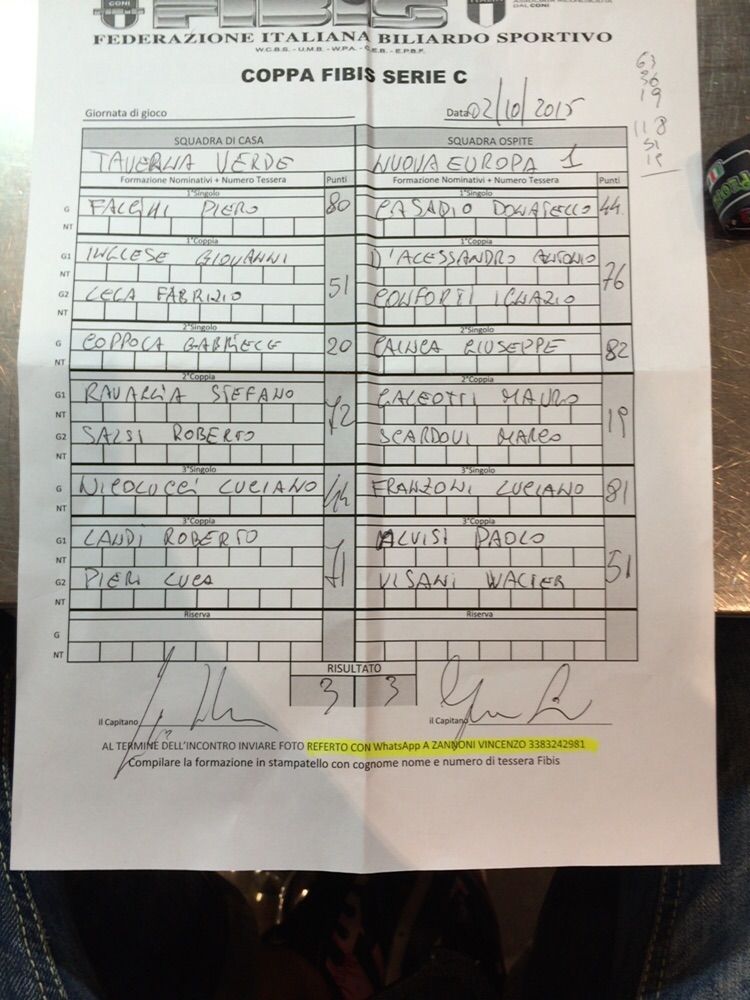 CONI
FIBIS
ITALIA
DAL CONI
FEDERAZIONE ITALIANA BILIARDO SPORTIVO
W.C.B.S. - U.M.B. - W.P.A. - C.E.B. - E.P.B.F.
COPPA FIBIS SERIE C
63
36
19
118
51
19
Giornata di gioco
Data 02/10/2015
SQUADRA DI CASA SQUADRA OSPITE
TAVERNA VERDE NUOVA EUROPA 1
Formazione Nominativi + Numero Tessera Punti Formazione Nominativi + Numero Tessera Punti
1°Singolo 1°Singolo
G FALCINI PIERO 80 CASADIO DONATELLO 44
NT
1°Coppia 1°Coppia
G1 INGLESE GIOVANNI 51 D'ALESSANDRO ANTONIO 76
NT
G2 LEGA FABRIZIO CONFORTI IGNAZIO
NT
2°Singolo 2°Singolo
G COPPOLA GABRIELE 20 CAINCA GIUSEPPE 82
NT
2°Coppia 2°Coppia
G1 RAVAGLIA STEFANO 72 GALEOTTI MAURO 19
NT
G2 SALSI ROBERTO SCARDOVI MARCO
NT
3°Singolo 3°Singolo
G NICOLUCCI LUCIANO 44 FRANZONI LUCIANO 81
NT
3°Coppia 3°Coppia
G1 LANDI ROBERTO 71 ALVISI PAOLO 51
NT
G2 PIERI LUCA VISANI WALTER
NT
Riserva Riserva
G
NT
RISULTATO
3 3
il Capitano il Capitano
AL TERMINE DELL'INCONTRO INVIARE FOTO REFERTO CON WhatsApp A ZANNONI VINCENZO 3383242981
Compilare la formazione in stampatello con cognome nome e numero di tessera Fibis